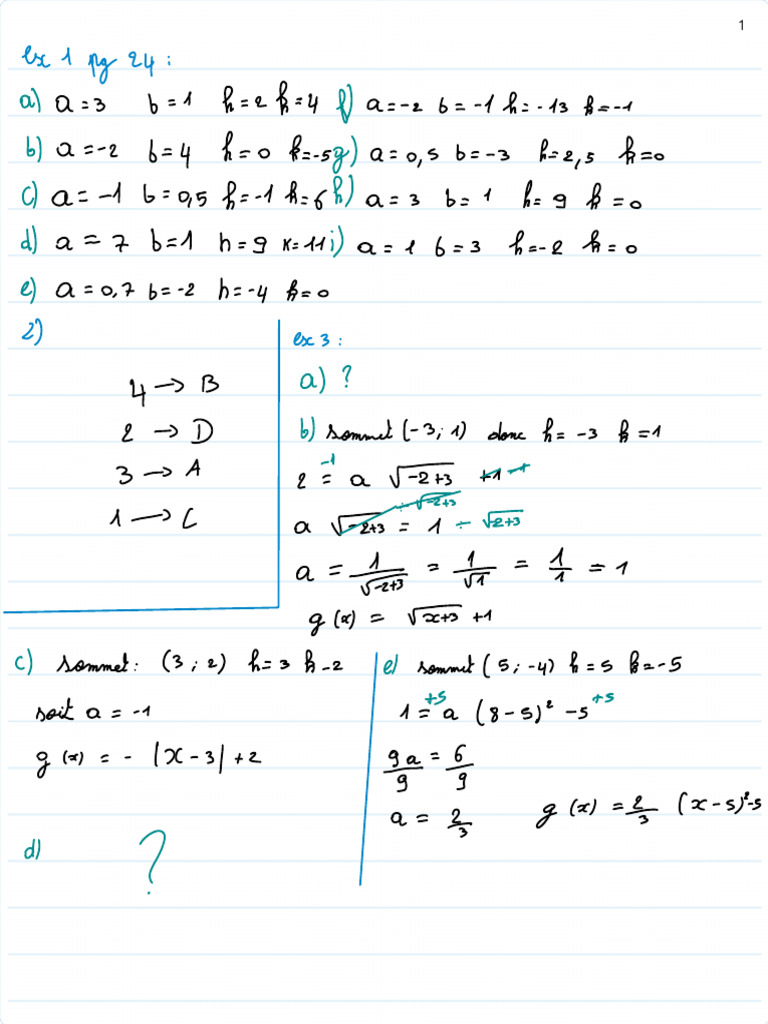 1
ex 1 pg 24 :
a) a = 3 b = 1 h = 2 k = 4 f) a = -2 b = -1 h = -13 k = -1
b) a = -2 b = 4 h = 0 k = -5 g) a = 0,5 b = -3 h = 2,5 k = 0
c) a = -1 b = 0,5 h = -1 k = 6 h) a = 3 b = 1 h = 9 k = 0
d) a = 7 b = 1 h = 9 k = 11 i) a = 1 b = 3 h = -2 k = 0
e) a = 0,7 b = -2 h = -4 k = 0
2)
4 → B
2 → D
3 → A
1 → C
ex 3 :
a) ?
b) sommet (-3 ; 1) donc h = -3 k = 1
-1
2 = a √-2+3 +1 -1
÷ √-2+3
a √-2+3 = 1 ÷ √2+3
a = 1/√-2+3 = 1/√1 = 1/1 = 1
g (x) = √x+3 +1
c) sommet : (3 ; 2) h = 3 k = 2
soit a = -1
g (x) = - |x - 3| + 2
d) ?
e) sommet ( 5 ; -4) h = 5 k = -5
+5 +5
1 = a (8 - 5)² - 5
9a/9 = 6/9
a = 2/3 g (x) = 2/3 (x - 5)² - 5